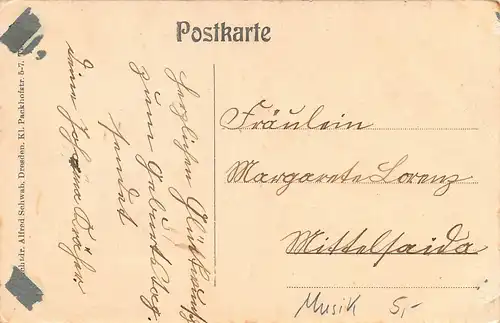 Postkarte
Herzlichen Glückwunsch
zum Geburtstag.
sendet
Deine Johanna
Fräulein
Margarete Lorenz
Mittelsaida
Musik 5,-
Alfred Schwab, Dresden, Kl. Packhofstr. 5-7.